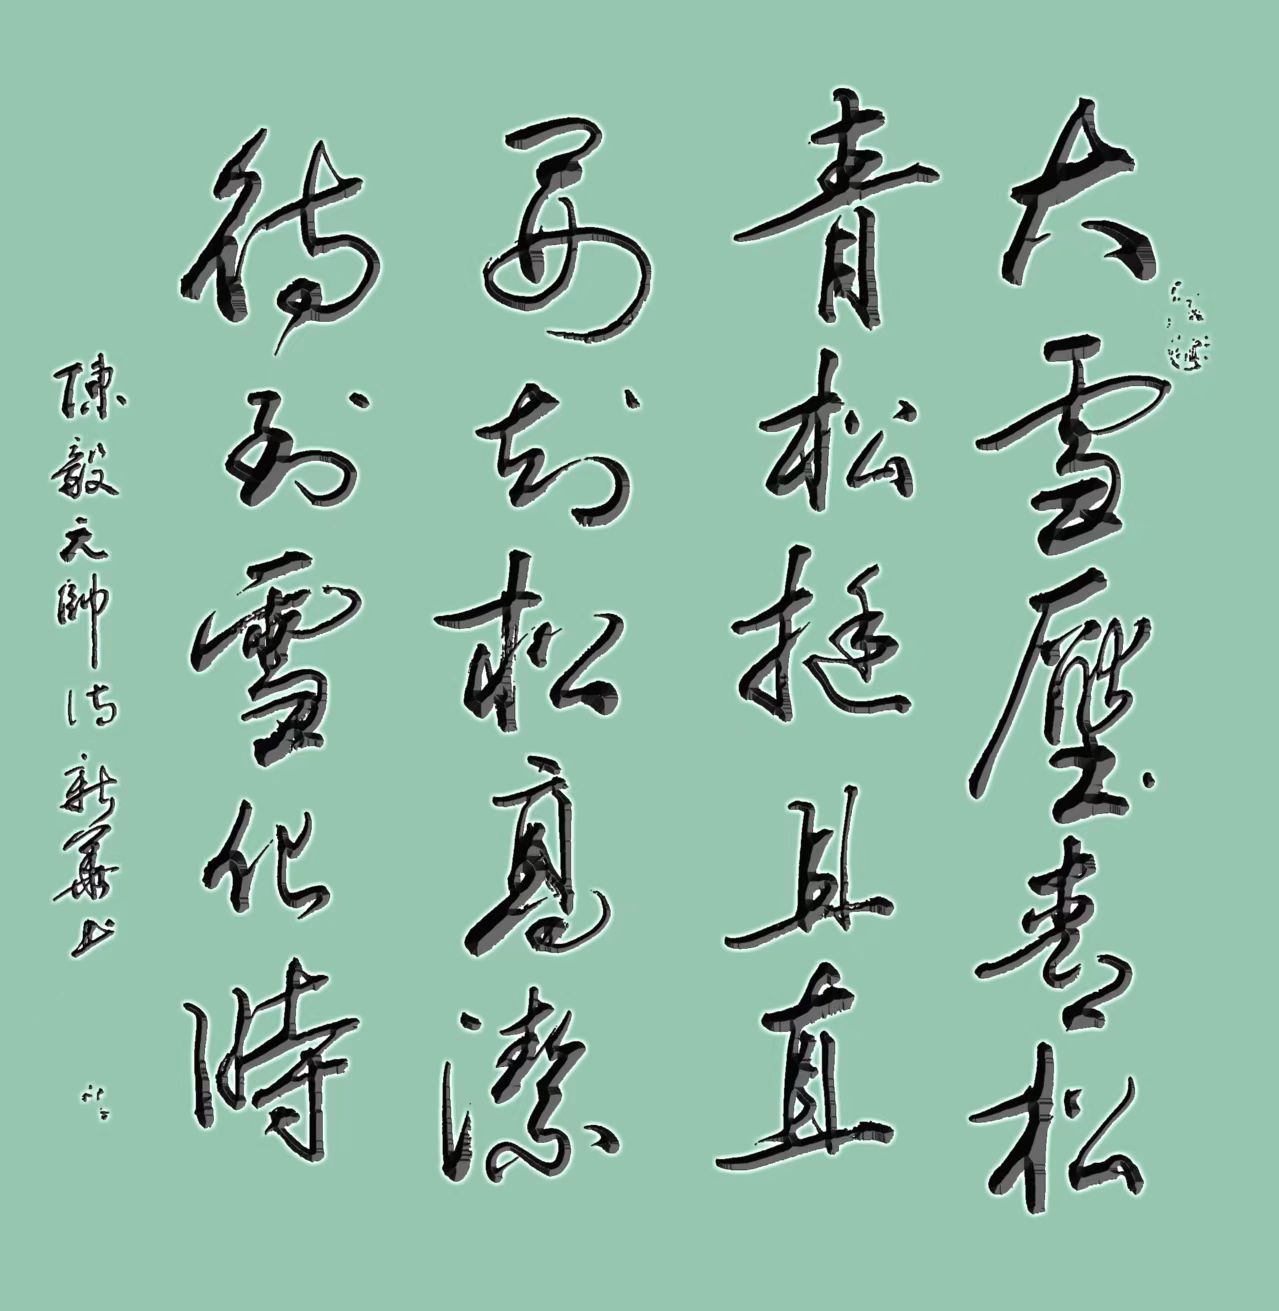 大雪壓青松
青松挺且直
要知松高潔
待到雪化時
陳毅元帥詩新華书